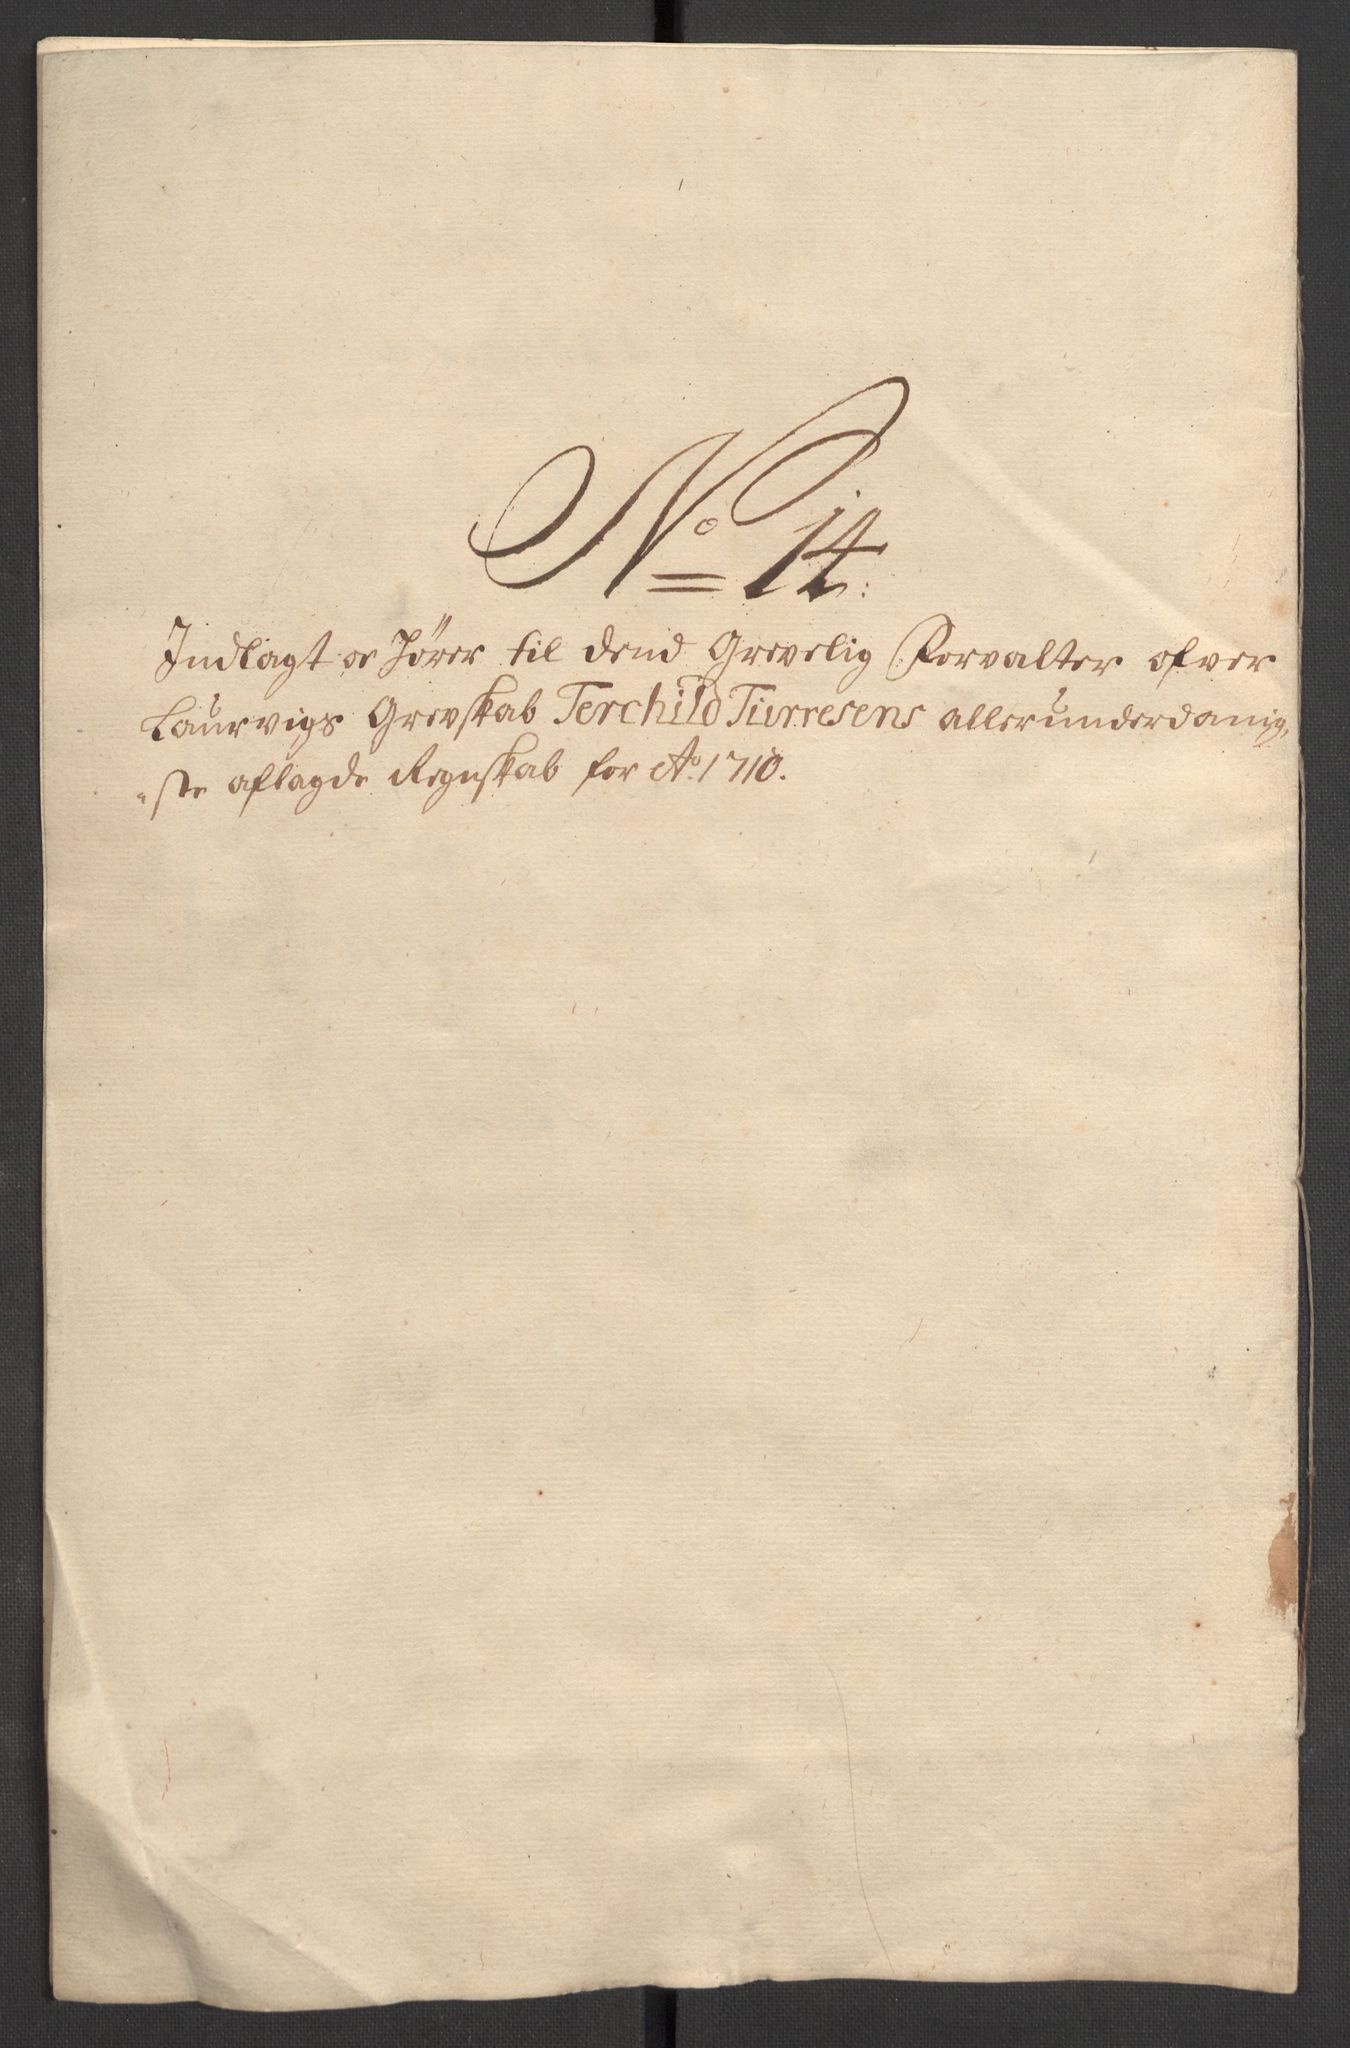 No 14:
Indlagt oc hører til dend Grevelig Forvalter ofver
Laurvigs Grevskab Terchild Tiurresens allerunderdanig„
„ste aflagde Regnskab for Ao. 1710.